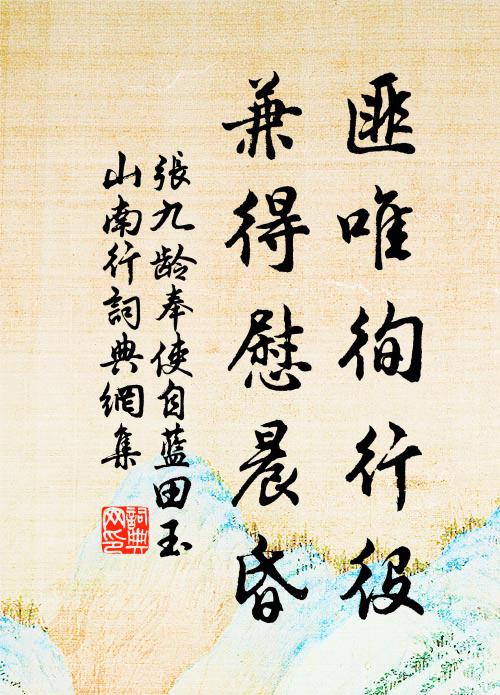 匪唯徇行役
兼得慰晨昏
張九龄奉使自藍田玉
山南行詞典網集
詞典
网印